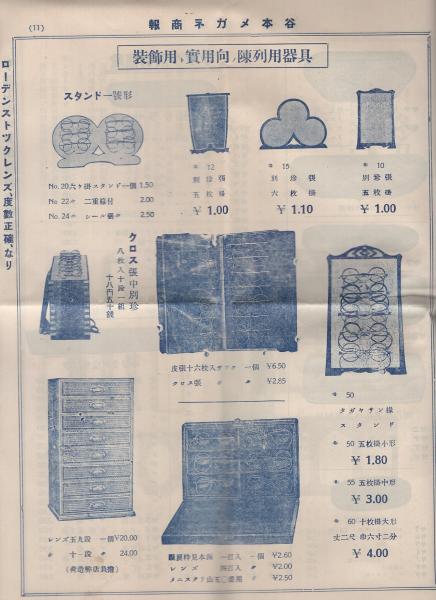 (11)
報商ネガメ本谷
装飾用、實用向ノ陳列用器具
ローデンストックレンズ、度數正確、なり
スタンド一號形
No. 20六ヶ掛スタンド一個 1.50
No. 22〃 二重縁付 2.00
No. 24〃 シール張〃 2.50
12
別珍張
五枚掛
¥ 1.00
15
別珍張
六枚掛
¥ 1.10
10
別珍張
五枚掛
¥ 1.00
クロス張中別珍
八枚入十段一組
十八円五十錢
皮張十六枚入サック 一個 ¥6.50
クロス張 〃 〃 ¥2.85
50
タガヤサン縁
スタンド
50 五枚掛小形
¥ 1.80
55 五枚掛中形
¥ 3.00
60 十枚掛大形
丈二尺 巾六寸二分
¥ 4.00
レンズ玉九段 一個 ¥20.00
〃 十一段 〃 24.00
(荷造弊店負擔)
一百入 一個 ¥2.60
レンズ 〃 ¥2.00
¥2.50